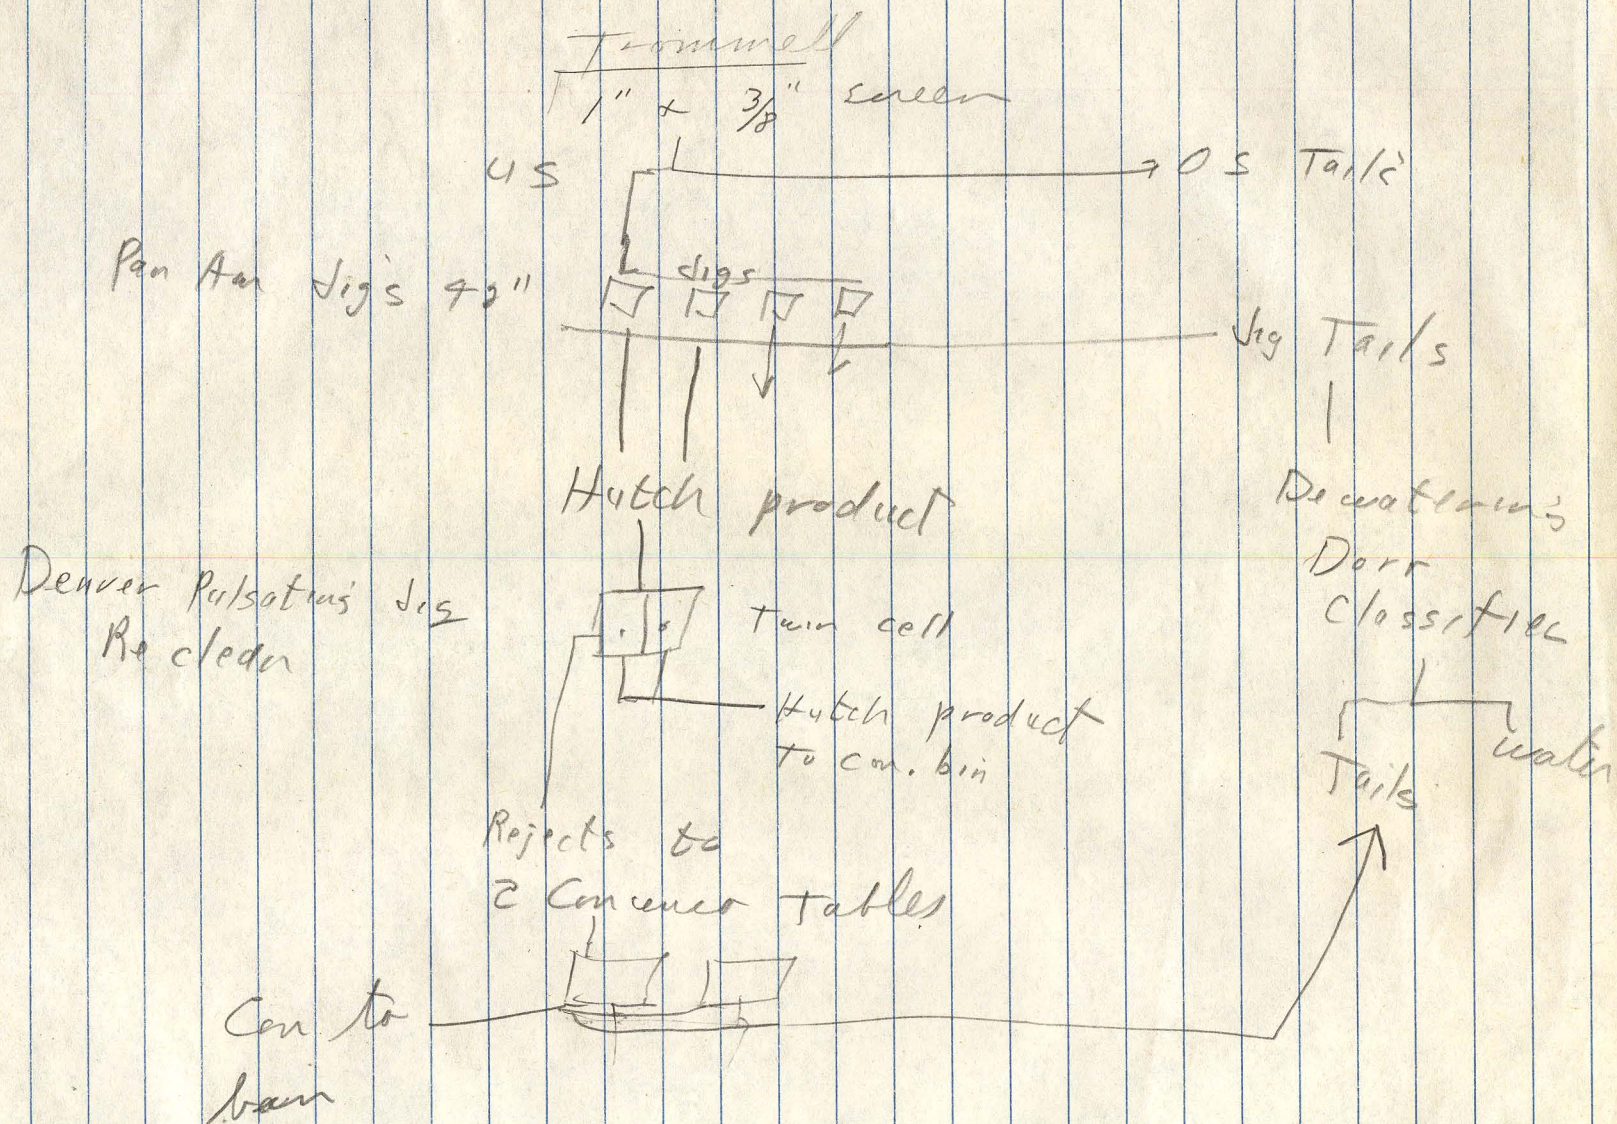 Trommell
1" x 3/8" screen
US
OS Tails
Pan Am Jig's 42"
Jigs
Jig Tails
Hutch product
Dewatering
Dorr
Classifier
Denver Pulsating Jig
Re clean
Twin cell
Hutch product
to con. bin
Tails
water
Rejects to
2 Concenco Tables
Con to
bin